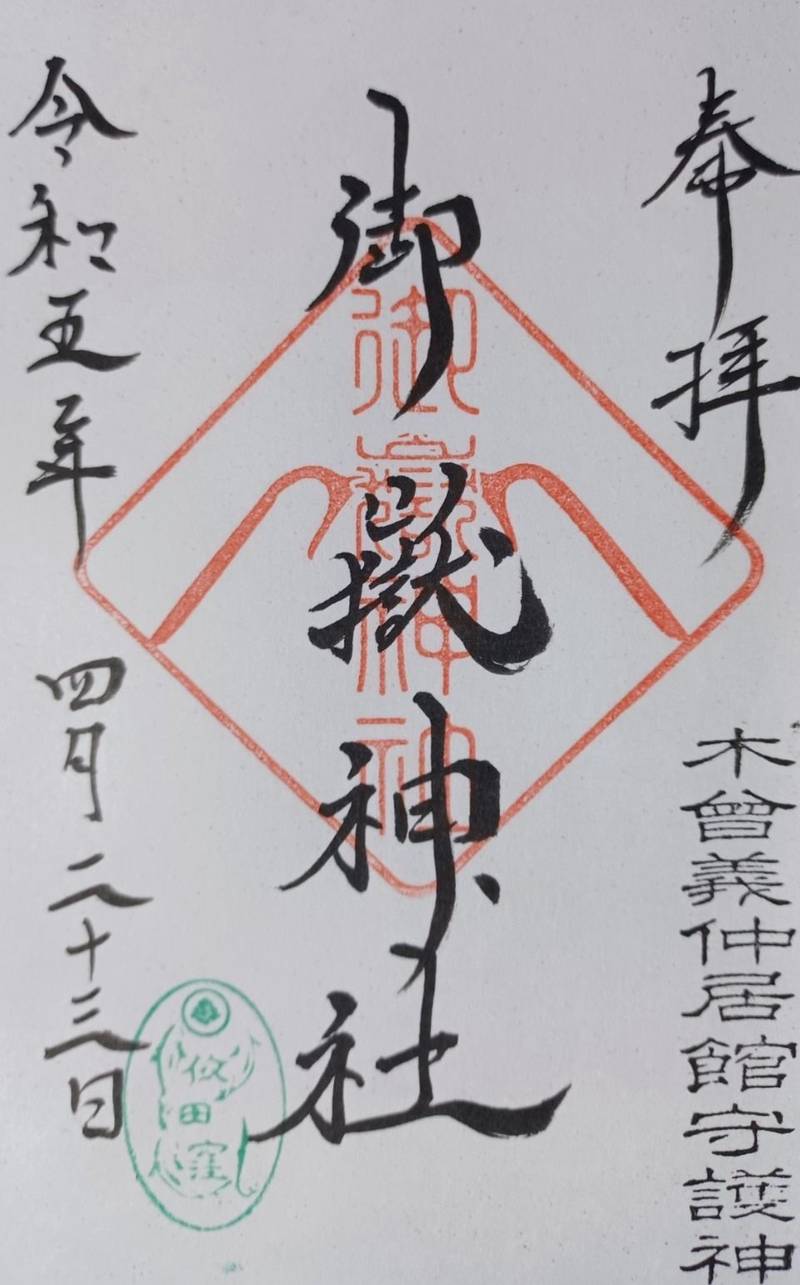 奉拝
木曾義仲居館守護神
御嶽神社
御嶽神社
令和五年 四月二十三日
依田窪